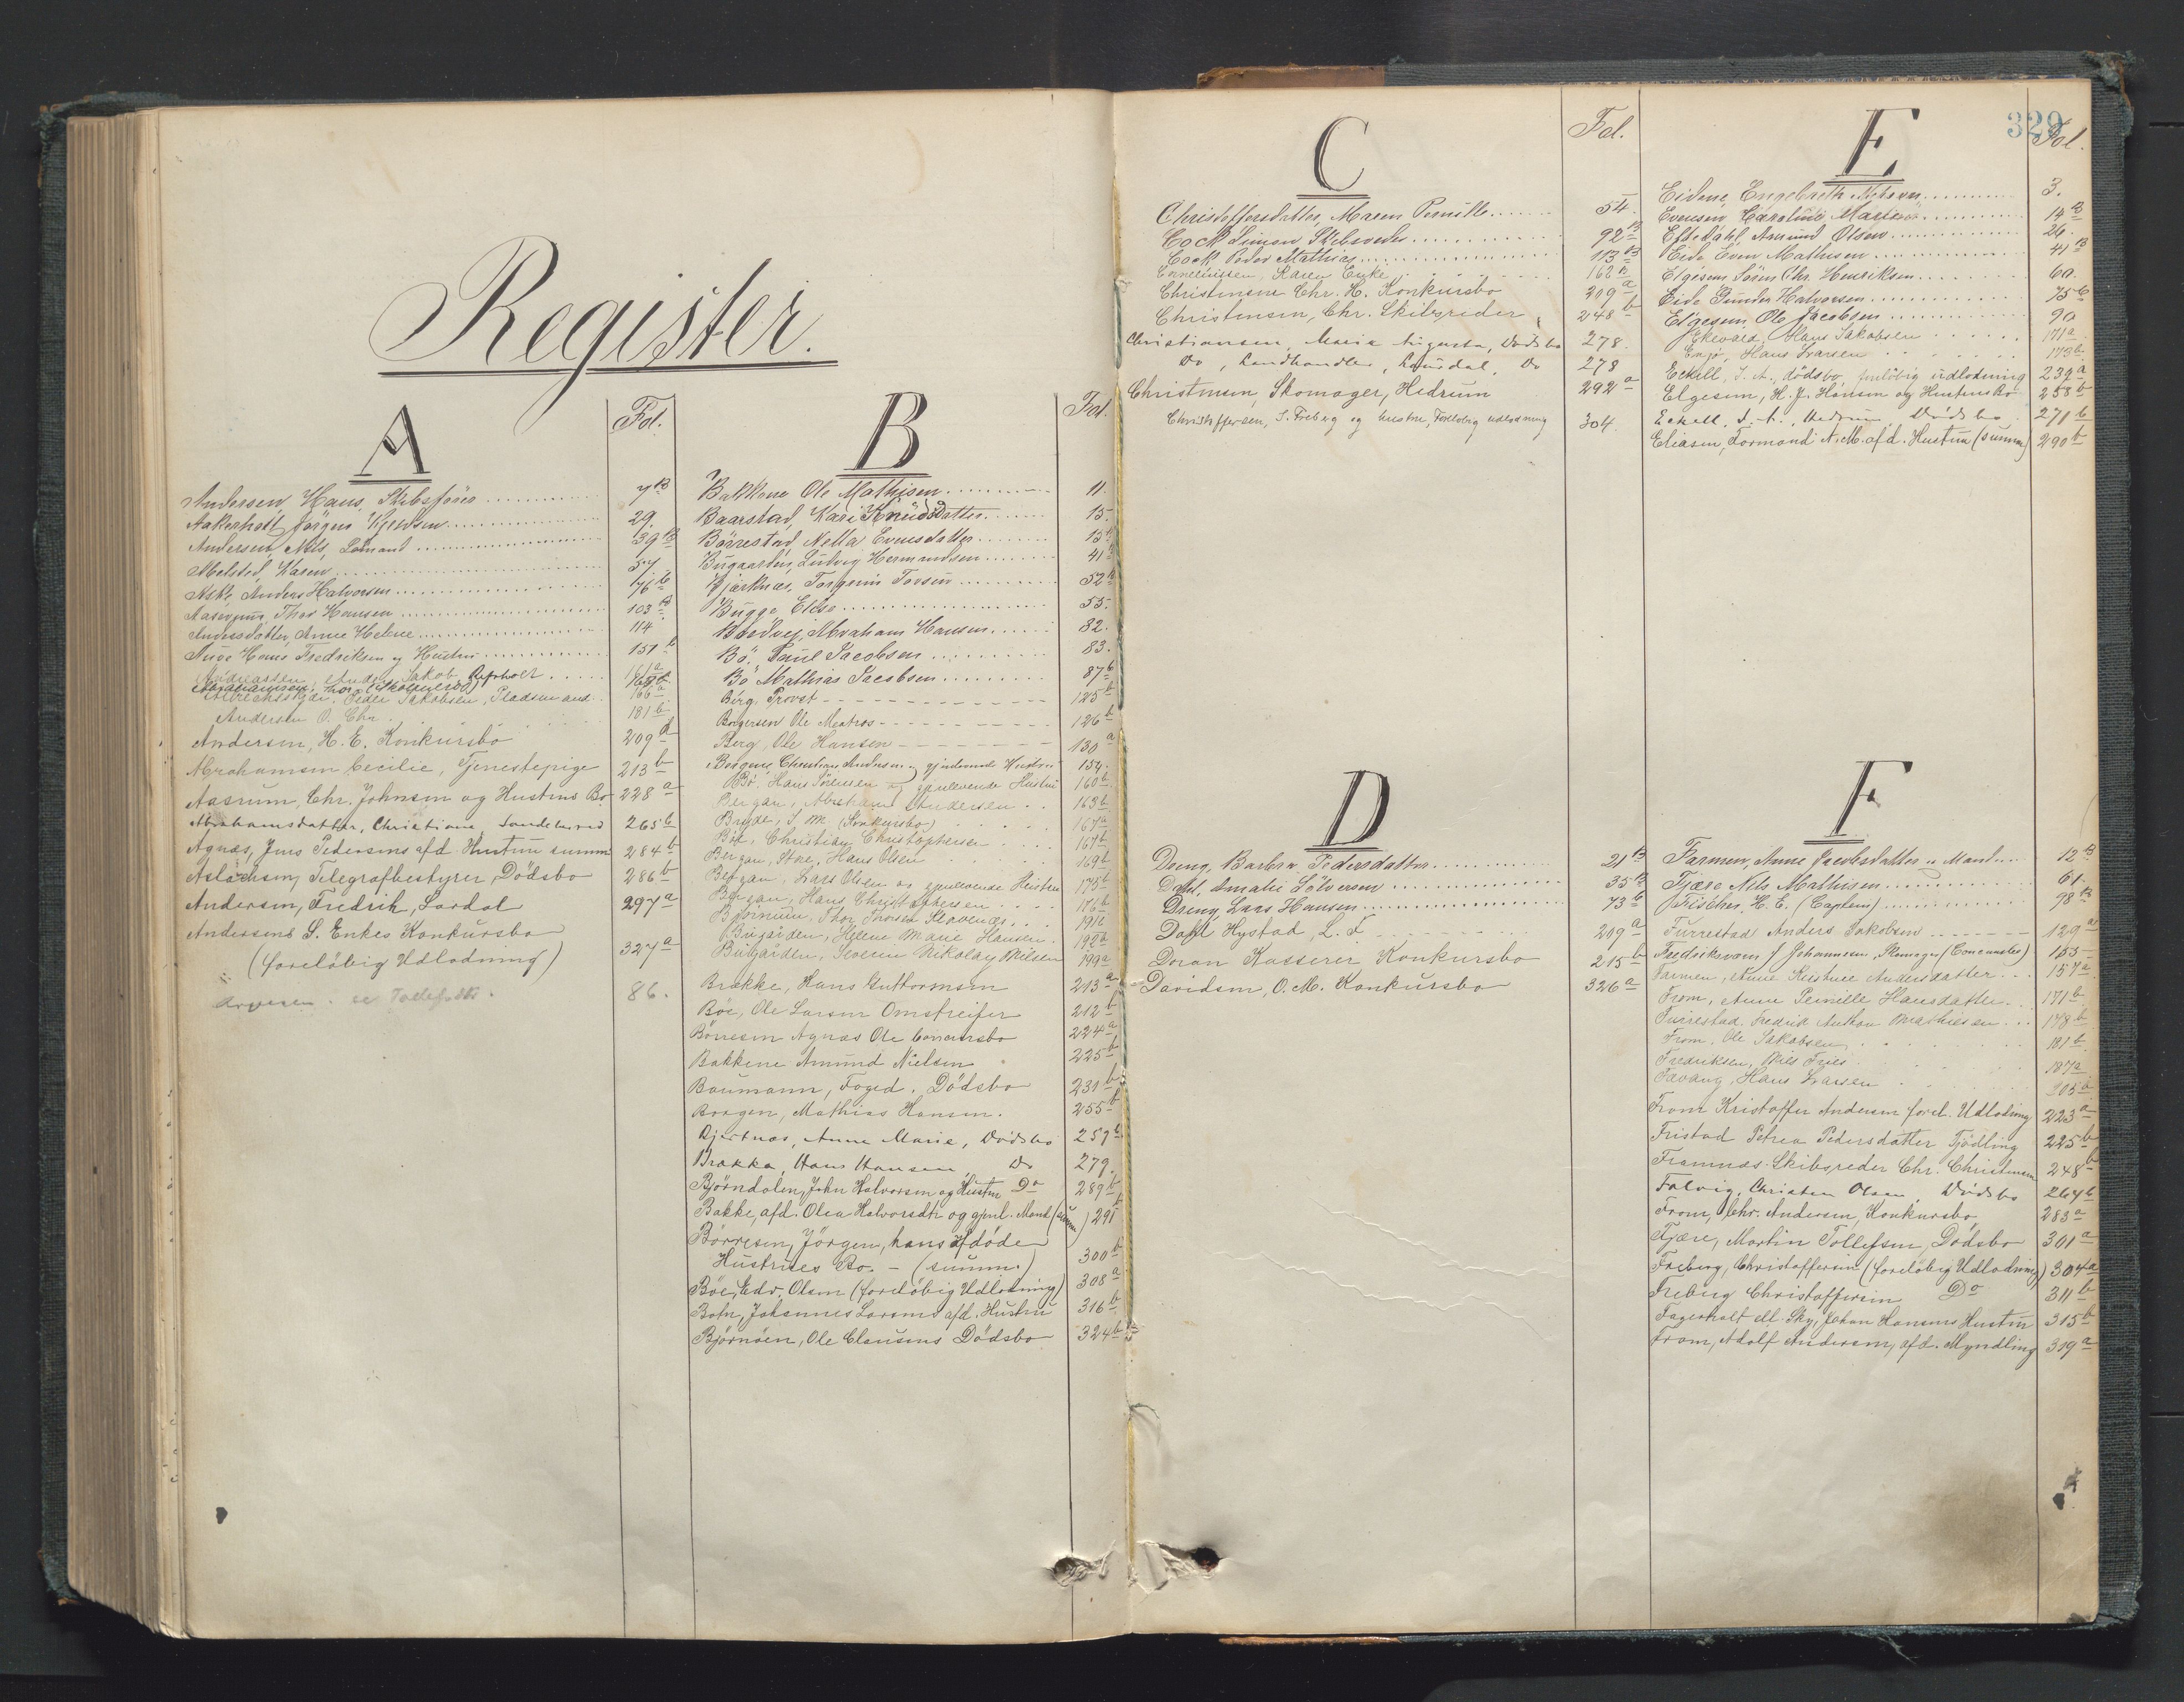 Register.
A
Fol.
Andersen, Hans, Skibsfører 7 B
Aakerholt Jörgen 29.
Andersen, Nils, Lömand 39 B
Abelsted, Karen 57
Aske Anders Halvorsen 76 b
Thor Hansen 103 B
Andersdatter, Anne Helene 114
Hans Fredriksen og Hustru 151 b
Jakob
Abrahamsen, Thor
Peder Jakobsen, Pladsmand 166 a
Andersen O. Chr. 181 b
Andersen, H. E. Konkursbo 209 a
Abrahamsen Cecilie, Tjenestepige 213 b
Aasrum, Chr. Johnsen og Hustrus Bo 228 a
Abrahamsdatter, Christiane, Sandeherred 265 b
Agnæs, Jens Pedersens afd. Hustru summ 284 b
Aslachsen, Telegrafbestyrer, Dödsbo 286 b
Andersen, Fredrik, Lardal 297 a
Andersens S. Enkes Konkursbo
(foreløbig Udlodning) 327 a
86.
B
Fol.
Bakkene Ole Mathisen 11.
Baarstad, Kari Knudsdatter 15.
Börrestad, Nella Evensdatter 15 B
Bugaarden, Ludvig Hermandsen 41 B
Bjerknæs, Torgrim Tovsen 52 B
Bugge Elise 55.
Abraham Hansen 82.
Bö. Paul Jacobsen 83.
Bö Mathias Jacobsen 87 b
Berg, Provst 125 b
Borgersen Ole Matros 126 b
Berg, Ole Hansen 130 a
Bergene Christian Andersen og gjenlevende Hustru 154.
Bö. Hans Sörensen og gjenlevende Hustru 160 b
Bergan, Abraham Andersen 163 b
Bryde, I. M. (Konkursbo) 167 a
Böe, Christian Christophersen 167 b
Bergan, Store, Hans Olsen 169 b
Bergan, Lars Olsen og gjenlevende Hustru 175 b
Bergan, Hans Christophersen 176 b
Bjørnum, Thor Thorsen 191 b
Bugården, Helene Marie Hansen 192 a
Bugården, Severin Nikolay Nilsen 199 a
Brække, Hans Guttormsen 213 a
Böe, Ole Larsen Omstreifer 212 b
Börresen Agnæs Ole Concursbo 224 a
Bakkene Amund Nielsen 225 b
Baumann, Foged. Dödsbo 231 b
Borgen, Mathias Hansen. 255 b
Bjertnæs, Anne Marie, Dödsbo 259 b
Brække, Hans Hansen Do 279.
Björndalen, John Halvorsen og Hustru Do 289 b
Bakke, afd. Olea Halvorsdtr og gjenl. Mand (summ) 291 b
Börresen, Jörgen, hans afdöde
Hustrues Bo. – (summ.) 300 b
Böe, Edv. Olsen (foreløbig Udlodning) 308 a
Johannes Larsens afd. Hustru 316 b
Björnöen, Ole Clausens Dödsbo 324 b
C
Fol.
Christoffersdatter, Maren Pernille 54.
Cock Simon Skibsreder 92 B
Cock Peder Mathias 113 B
Corneliussen, Karen Enke 162 B
Christensen Chr. H. Konkursbo 209 a
Christensen, Chr. Skibsreder 248 b
Christiansen, Maria Augusta, Dødsbo 278.
Do, Landhandler, Laurdal, Do 278
Christensen, Skomager, Hedrum 292 a
Christoffersen, S. Freberg og hustru, Foreløbig udlodning 304.
D
Dreng, Barbra Pedersdatter 21 B
Dahl, Amalie Sölversen 35 B
Dreng Lars Hansen 73 b
Dahl Hystad, L. F. 209 a
Doran Kasserer Konkursbo 215 b
Davidsen, O. M. Konkursbo 326 a
329
E
Fol.
Eidene, Engebreth 3.
Evensen Caroline Marie 14 B
Eftedahl, Amund Olsen 26.
Eide Even Mathisen 41 B
Elgesem Sören Chr. Henriksen 60.
Eide Gunder Halvorsen 75 b
Elgesem, Ole Jacobsen 90
Ekevald, Hans Jakobsen 171 a
Hans Larsen 173 b
Eckell, I. A., dödsbo, foreløbig udlodning 239 a
Elgesem, H. J. Hansen og Hustrus Bo 258 b
Eckell, I. A., Hedrum Dødsbo 271 b
Eliasen, Formand N. M. afd. Hustru (summ) 290 b
F
Farmen, Anne Jacobsdatter o Mand 12 B
Fjære Nils Mathisen 61.
Frischer, H. E. (Captein) 98 B
Furrestad Anders Jakobsen 129 a
Fredriksværn J Johannesen, Skomager (Concursbo) 155
Farmen, Anne Kirstine Andersdatter 157 a
From, Anne Pernille Hansdatter 171 b
Furrestad. Fredrik Anthon Mathiesen 178 b
From, Ole Jakobsen 181 b
Fredriksen, Nils Fries 187 a
Favang, Hans Larsen 205 a
From Kristoffer Andersen forel. Udlodning 223 a
Fristad Petrea Pedersdatter Tjödling 225 b
Framnæs Skibsreder Chr. Christensen 248 b
Falvig, Christen Olsen, Dödsbo 264 b
From, Chr. Andersen, Konkursbo 283 a
Fjære, Martin Tollefsen, Dödsbo 301 a
Freberg, Christoffersen (foreløbig Udlodning) 304 a
Freberg Christoffersen Do 311 b
Fagerholt ell. Sky, Johan Hansens Hustru 315 b
From, Adolf Andersen, afd. Myndling 319 a